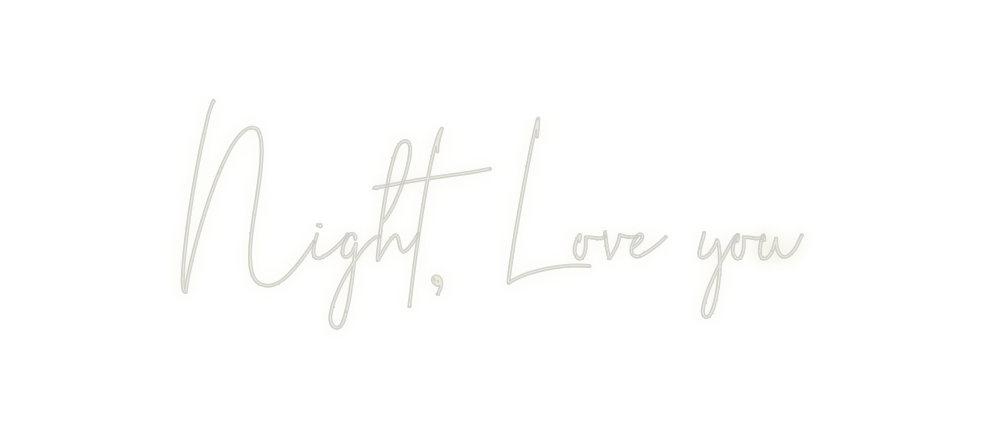 Night, Love you